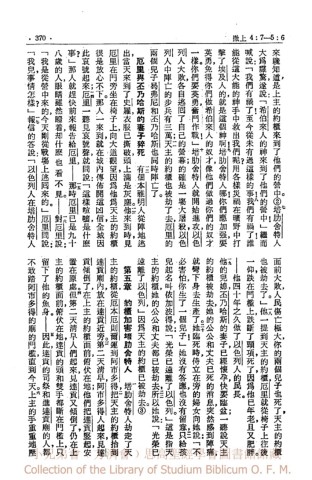 · 370 ·
撒上 4:7—5:6
來纔知道是上主的約櫃來到了他們的營中。培肋舍特人
大爲驚駭遂說「希伯來人的神來到了他們的營中！」繼而
喊說「我們有禍了！至今從來未有過這樣的事我們有禍了！誰
能從這大能的神手中救出我們呢？用各樣災禍在曠野中打
擊了埃及人的就是這個神啊！培肋舍特人哪你們應加強要
英勇免得你們做希伯來人的奴才像他們做過你們的奴才
一樣你們要英勇奮鬥作戰！」培肋舍特人便開始進攻以色
列人大敗各自逃回了自己的帳幕
列人陣亡的步兵有三萬天主的約櫃也被劫去了並且厄里的
兩個兒子曷弗尼和丕乃哈斯也同時陣亡了。
厄里與丕乃哈斯的妻子猝死 有一個本雅明人從陣地逃
出當天來到了史羅衣服已撕破頭上滿是灰塵他來到時見
厄里在門旁坐在椅子上向大道觀望因爲他爲天主的約櫃
很是放心不下那人一來到就在城內傳佈開這凶信全城因
此哀號起來厄里一聽見哀號聲就問說「這樣喧嚷是什麼
事」那人就趕快前來報告給厄里——那時厄里已是九十
八歲的人眼睛雖然睜着却什麼也看不見——對厄里說
「我是由營中來的今天剛從戰場上逃回來的。」厄里問說
「我兒事情怎樣？」報信的答說「以色列人在培肋舍特人
面前大敗人民傷亡極大你的兩個兒子也死了天主的約櫃
也被劫去了！」他一提到天主的約櫃厄里就從椅子上往後
一仰跌在門檻上跌斷了頸項死了因爲他已年老且又肥胖
——他四十年之久做了以色列人的民長
他的兒媳丕乃哈斯的妻子已經懷孕快要臨盆一聽說天主
的約櫃被劫去她的公公和丈夫已死的消息突然感到陣痛
就彎下身去生產了她臨死時侍立在旁的婦女向她說「不
必害怕你生了一個兒子！」她沒有答覆也沒有留意只給孩
兒起名叫依加波得說「光榮已遠離了以色列」這是指天主
的約櫃她的公公和丈夫都已被劫去
遠離了以色列」因爲天主的約櫃已被劫去
第五章 約櫃加害培肋舍特人 培肋舍特人劫走了天主
的約櫃從厄本厄則爾運到阿市多得把天主的約櫃抬到
達貢廟內放在達貢近旁第二天阿市多得人起來見達
貢傾倒了在上主的約櫃面前俯伏在地他們把達貢豎起安
置在原處但第二天清早人們起來見達貢又傾倒了仍在上
主的約櫃面前俯伏在地達貢的頭和雙手都斷在門檻上只
留下了他的魚身——因此達貢的司祭和進達貢廟的人都
不敢踏阿市多得的廟的門檻直到今天。上主的手重重地壓
Collection of the Library of Studium Biblicum O. F. M.